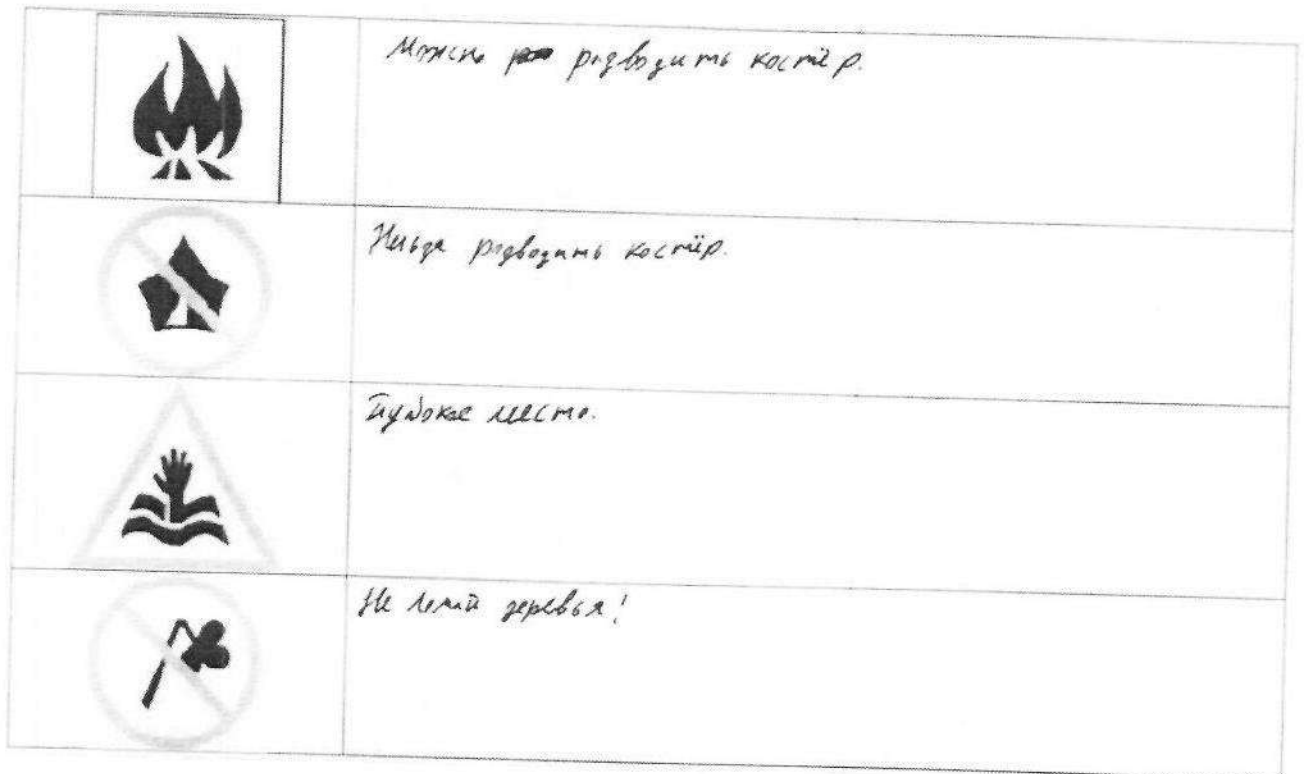 Можно разводить костёр.
Нельзя разводить костёр.
Глубокое место.
Не ломай деревья!